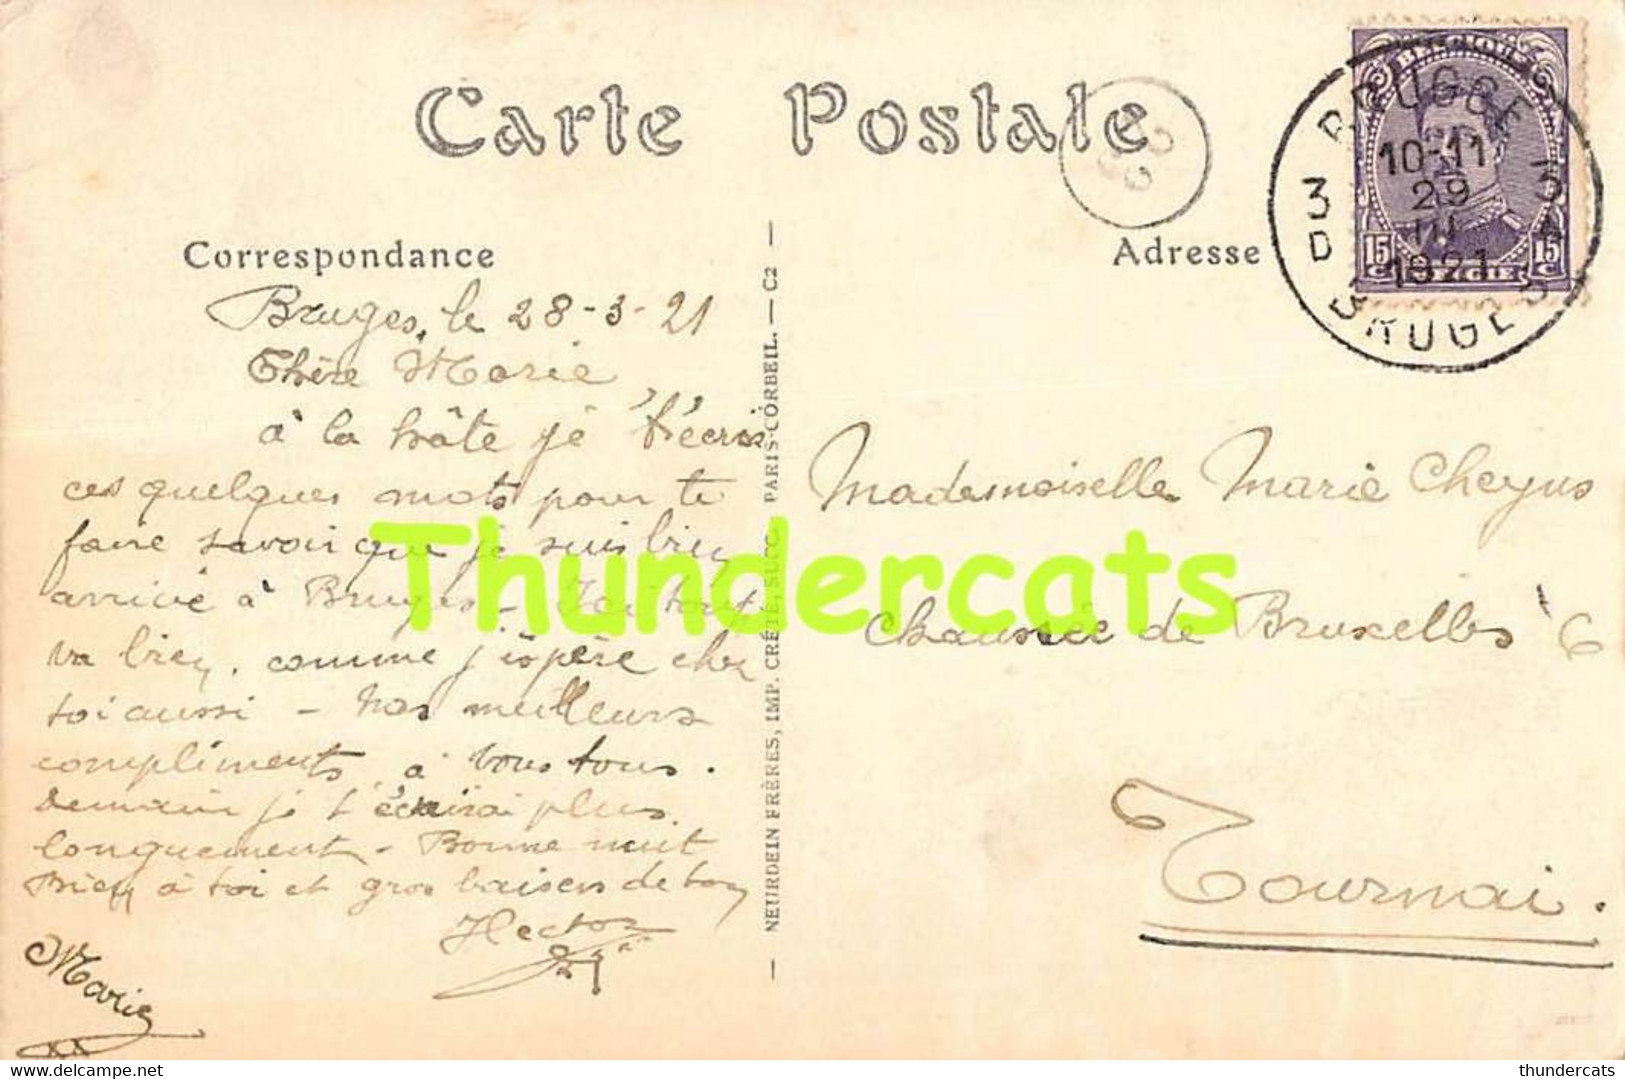 Carte Postale
Correspondance
Adresse
BELGIQUE
15 15
C BELGIE C
BRUGGE
10-11
29
III
1921
3 D
3A
BRUGES
Bruges, le 28-3-21
Chère Marie
à la hâte je t'écris
ces quelques mots pour te
faire savoir que je suis bien
arrivé à Bruges - Ici tout
va bien, comme j'espère chez
toi aussi - nos meilleurs
compliments à vous tous.
Demain je t'écrirai plus
longuement - Bonne nuit
Bien à toi et gros baisers de ton
Hector
Marie
NEURDEIN FRÈRES, IMP. CRÉTÉ, SUCC. PARIS-CORBEIL. — C2
Mademoiselle Marie Cheyns
Chaussée de Bruxelles 6
Tournai.
Thundercats
thundercats